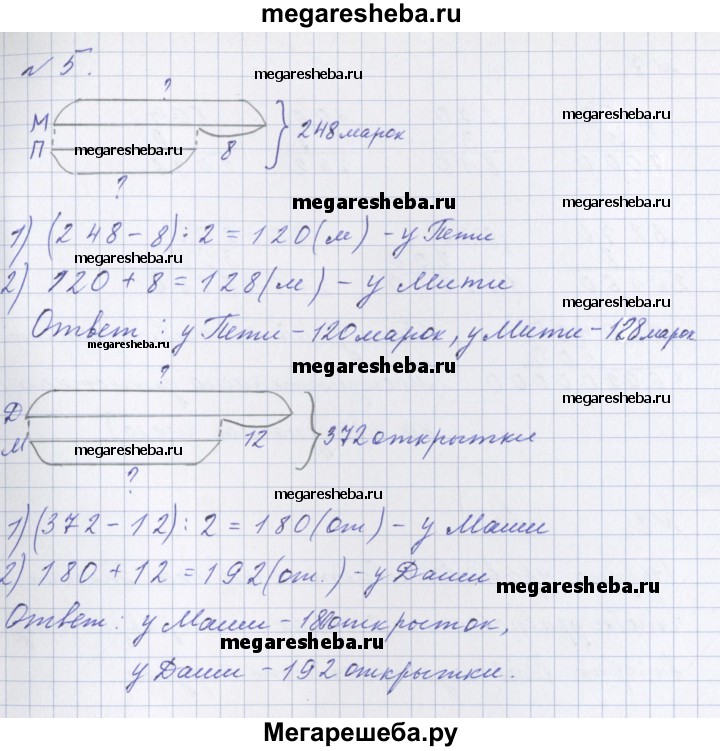 megaresheba.ru
№ 5.
megaresheba.ru
?
М
megaresheba.ru
} 248 марок
П
megaresheba.ru
8
?
megaresheba.ru
megaresheba.ru
1) (248 - 8) : 2 = 120 (м) - у Пети
2) 120 + 8 = 128 (м) - у Мити
megaresheba.ru
Ответ : у Пети - 120 марок, у Мити - 128 марок
megaresheba.ru
megaresheba.ru
?
megaresheba.ru
Д
12
} 372 открытки
М
megaresheba.ru
megaresheba.ru
?
megaresheba.ru
1) (372 - 12) : 2 = 180 (от) - у Маши
2) 180 + 12 = 192 (от.) - у Даши
megaresheba.ru
Ответ : у Маши - 180 открыток,
megaresheba.ru
у Даши - 192 открытки.
Мегарешеба.ру